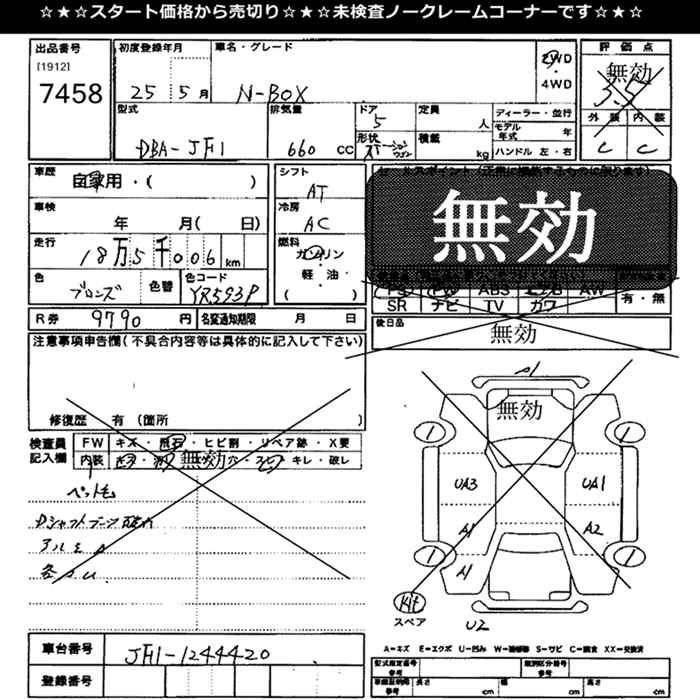 ☆★☆スタート価格から売切り☆★☆未検査ノークレームコーナーです☆★☆
出品番号
[1912]
7458
初度登録年月
25 5月
車名・グレード
N-BOX
2WD
・
4WD
評価点
無効
3.5
外装 内装
C C
型式
DBA-JF1
排気量
660 CC
ドア
5
形状
定員
人
積載
kg
ディーラー・並行
モデル年式 年
ハンドル 左・右
車歴
自家用・( )
車検
年 月( 日)
走行
18万5千006km
色
ブロンズ
色替
色コード
YR593P
シフト
AT
冷房
AC
燃料
ガソリン
・
軽油・
( )
無効
PS PW ABS AW
SR ナビ TV カワ
有・無
R券 9790円
名変通知期限 月 日
後日品
無効
注意事項申告欄(不具合内容等は具体的に記入して下さい)
修復歴 有(箇所 )
検査員記入欄
FW キズ・飛石・ヒビ割・リペア跡・X要
内装 無効 穴・キレ・破レ
ペット毛
Dシャフトブーツ破れ
アルミA
各AU
無効
A1
1 1
UA3 UA1
A1 A2
1 1
A1
Kit
スペア
U2
A=キズ E=エクボ U=凹ミ W=補修跡 S=サビ C=腐食 XX=交換済
車台番号
JF1-1244420
登録番号
型式指定番号
参考
類別区分番号
参考
車庫証明用
参考
長さ cm
幅 cm
高さ cm